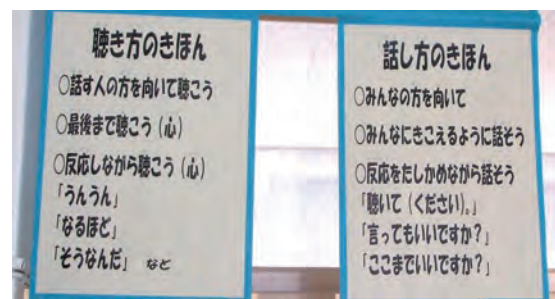 聴き方のきほん
○話す人の方を向いて聴こう
○最後まで聴こう(心)
○反応しながら聴こう(心)
「うんうん」
「なるほど」
「そうなんだ」 など
話し方のきほん
○みんなの方を向いて
○みんなにきこえるように話そう
○反応をたしかめながら話そう
「聴いて(ください)。」
「言ってもいいですか?」
「ここまでいいですか?」